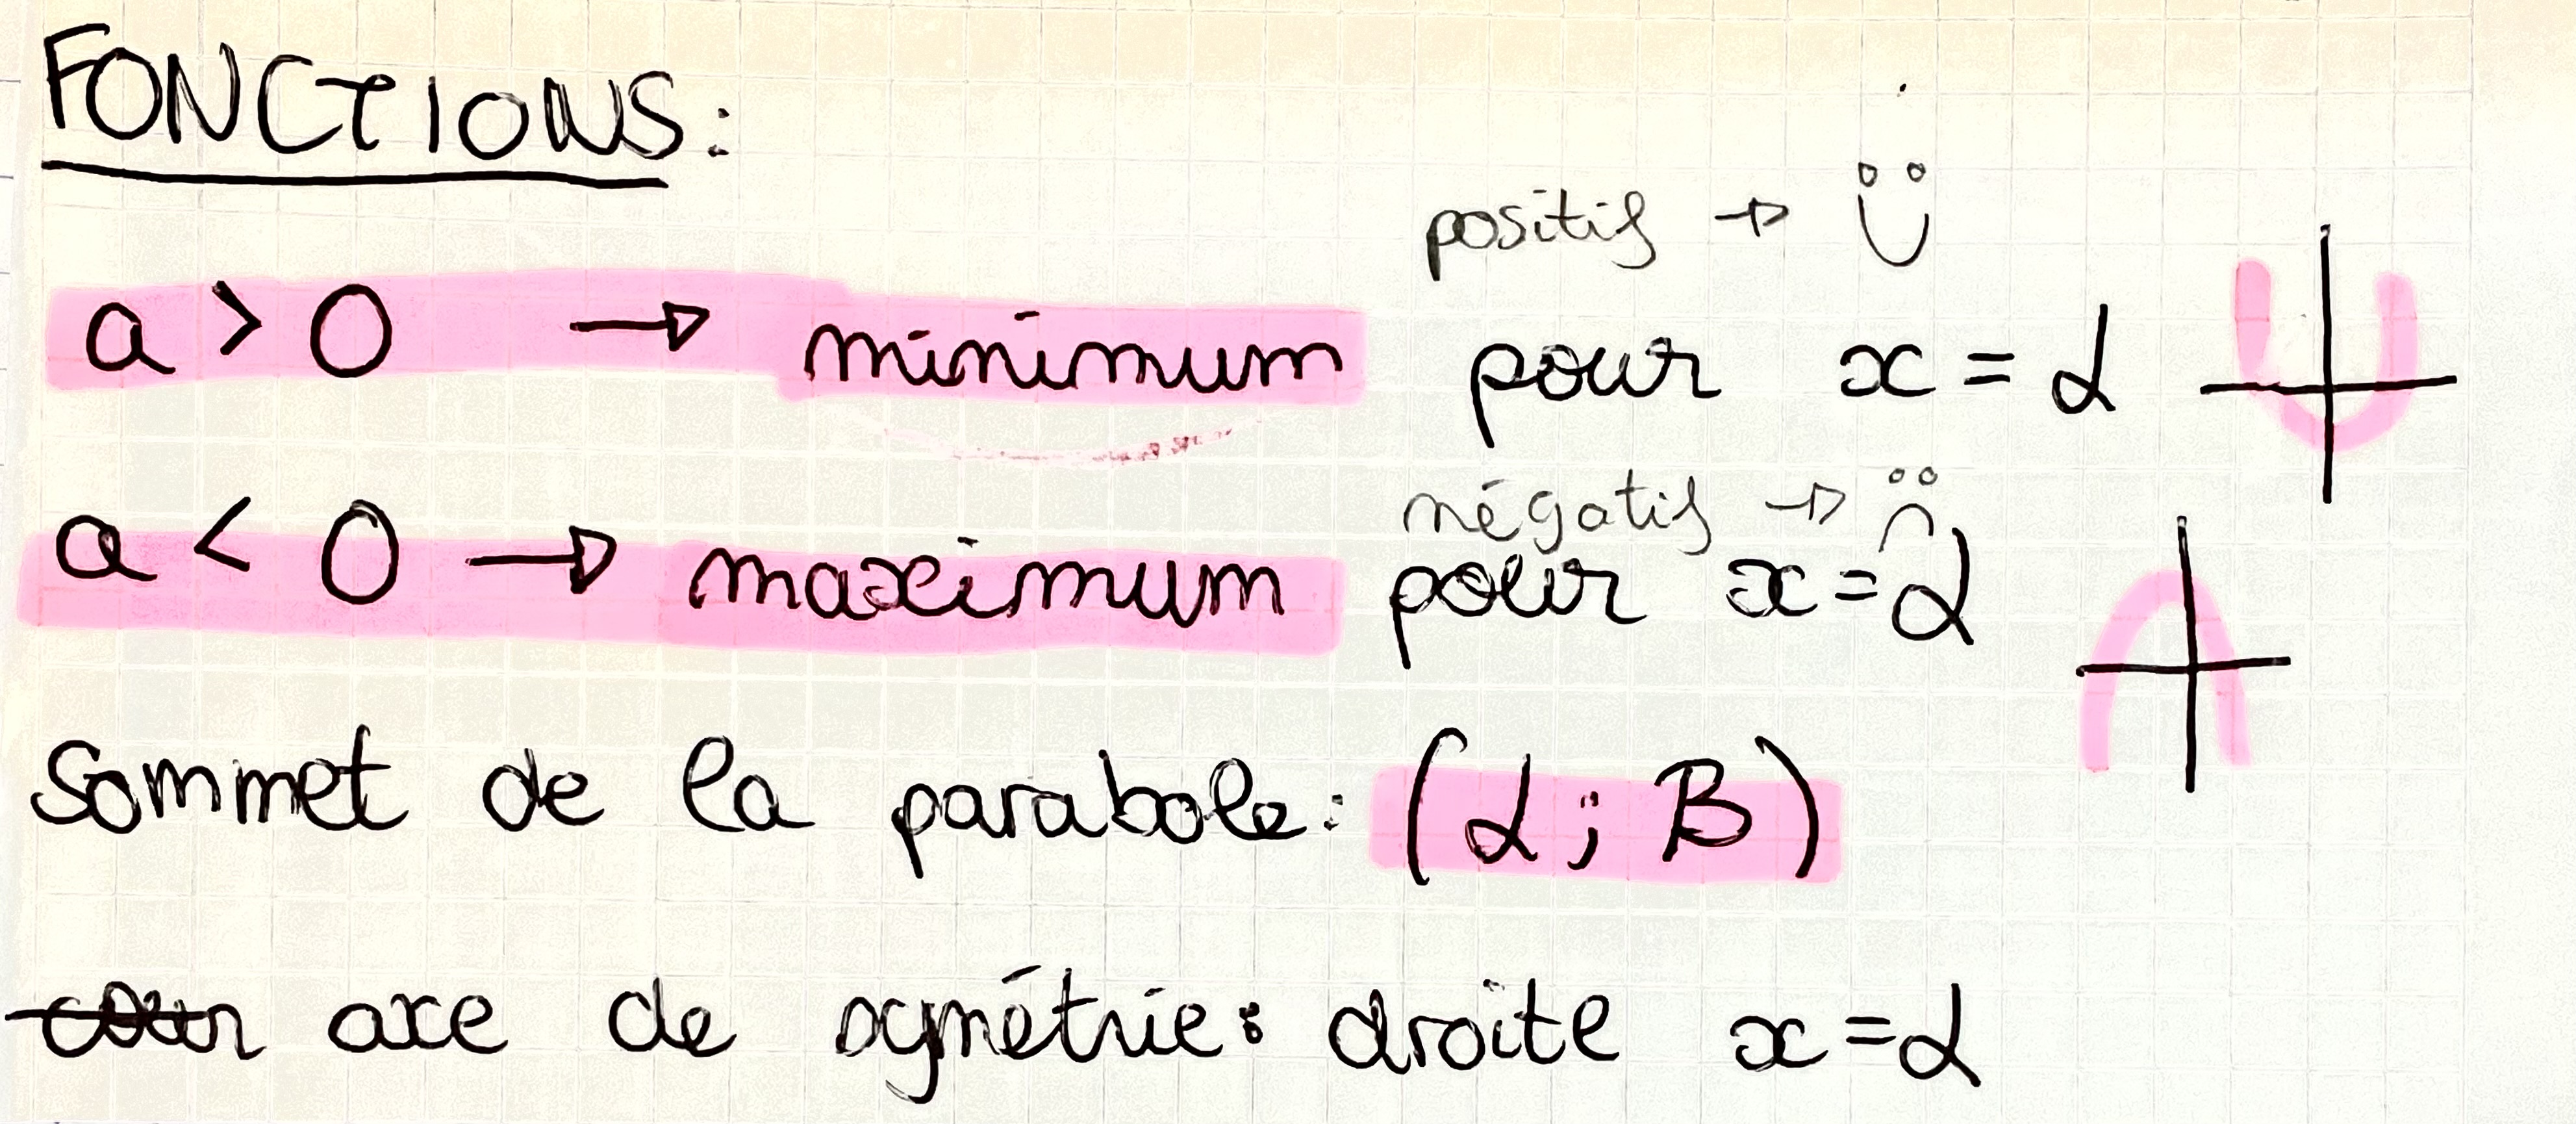 FONCTIONS:
positif →
a > 0 → minimum pour x = α
négatif →
a < 0 → maximum pour x = α
Sommet de la parabole: (α ; B)
axe de symétrie: droite x = α